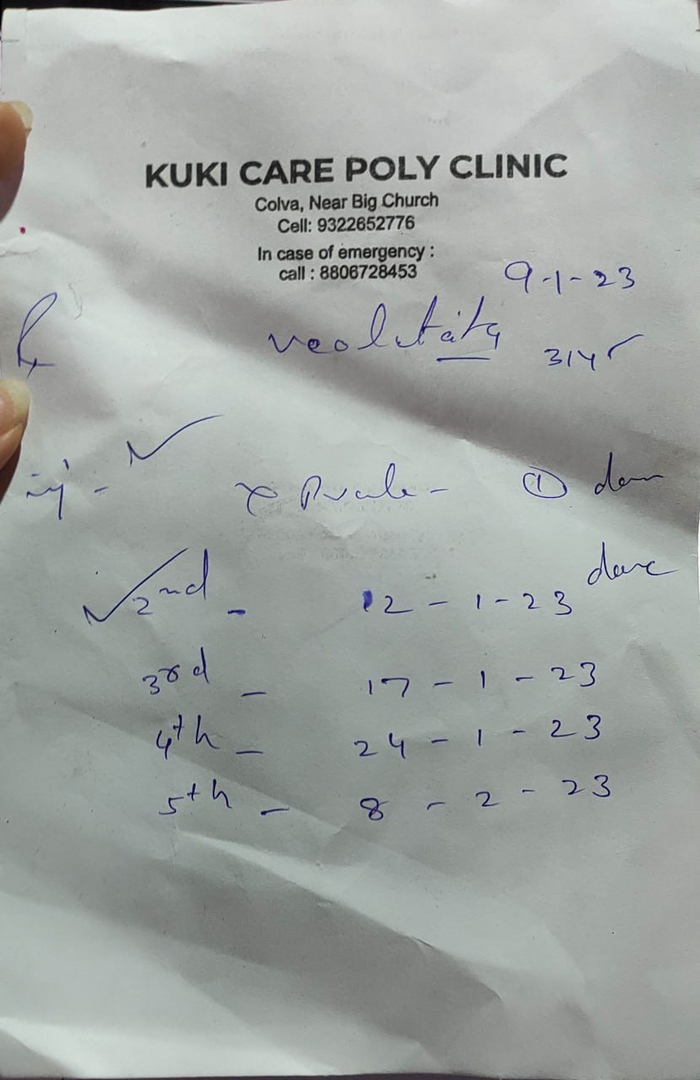 KUKI CARE POLY CLINIC
Colva, Near Big Church
Cell: 9322652776
In case of emergency :
call : 8806728453
9-1-23
31yr
①
2nd - 12-1-23 done
3rd - 17-1-23
4th - 24-1-23
5th - 8-2-23